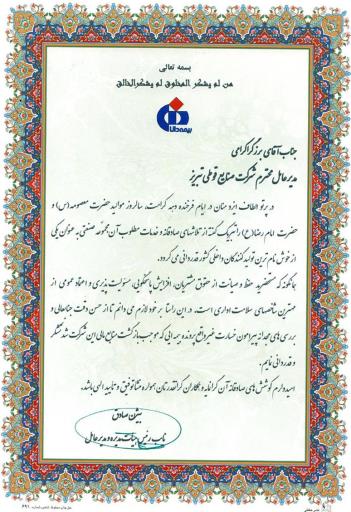 بسمه تعالی
من لم یشکر المخلوق لم یشکر الخالق
بیمه دانا
جناب آقای برزگر گرامی
مدیرعامل محترم شرکت صنایع قوطی تبریز
در پرتو الطاف ایزد منان در ایام فرخنده دهه کرامت، سالروز موالید حضرت معصومه (س) و
حضرت امام رضا (ع) را تبریک گفته از تلاشهای صادقانه و خدمات مطلوب آن مجموعه صنعتی به عنوان یکی
از خوش نام ترین تولید کنندگان داخلی کشور قدردانی می گردد.
همانگونه که مستحضرید حفظ و صیانت از حقوق مشتریان، افزایش پاسخگویی، مسئولیت پذیری و اعتماد عمومی از
مهمترین شاخصهای سلامت اداری است، در این راستا بر خود لازم می دانم تا از حسن وقت جنابعالی و
بررسی های مجدانه پیرامون خسارت غیر واقع پرونده بیمه ایی که موجب بازگشت منابع مالی این شرکت شد تشکر
و قدردانی نمایم.
امیدوارم کوشش های صادقانه آن گرانمایه و همکاران گرانقدرتان همواره منشا توفیق و تایید الهی باشد.
بیژن صادق
نایب رئیس هیات مدیره و مدیرعامل